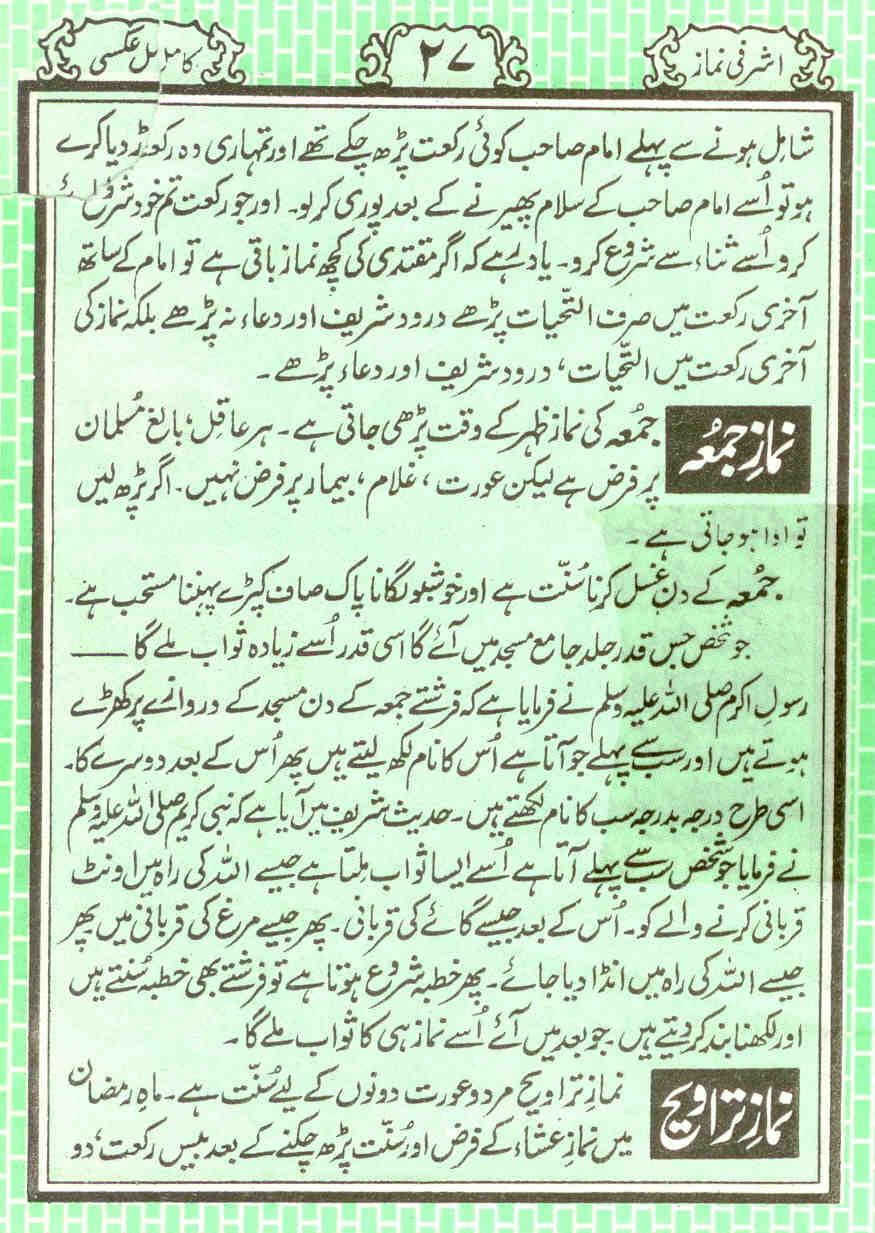 اشرفی نماز
۲۷
کامل عکسی
شامل ہونے سے پہلے امام صاحب کوئی رکعت پڑھ چکے تھے اور تمہاری وہ رکعت
ہو تو اُسے امام صاحب کے سلام پھیرنے کے بعد پوری کر لو۔ اور جو رکعت تم خود شروع
کرو اُسے ثناء سے شروع کرو۔ یاد رہے کہ اگر مقتدی کی کچھ نماز باقی ہے تو امام کے ساتھ
آخری رکعت میں صرف التّحیات پڑھے درود شریف اور دعاء نہ پڑھے بلکہ نماز کی
آخری رکعت میں التّحیات، درود شریف اور دعاء پڑھے۔
نمازِ جمعُہ
جمُعہ کی نماز ظہر کے وقت پڑھی جاتی ہے۔ ہر عاقِل، بالغ مُسلمان
پر فرض ہے لیکن عورت، غلام، بیمار پر فرض نہیں۔ اگر پڑھ لیں
تو ادا ہو جاتی ہے۔
جمُعہ کے دن غسل کرنا سُنّت ہے اور خوشبو لگانا پاک صاف کپڑے پہننا مستحب ہے۔
جو شخص جس قدر جلد جامع مسجد میں آئے گا اسی قدر اُسے زیادہ ثواب ملے گا ——
رسول اکرم صلی اللہ علیہ وسلم نے فرمایا ہے کہ فرشتے جمعہ کے دن مسجد کے دروازے پر کھڑے
ہوتے ہیں اور سب سے پہلے جو آتا ہے اُس کا نام لکھ لیتے ہیں پھر اُس کے بعد دوسرے کا۔
اسی طرح درجہ بدرجہ سب کا نام لکھتے ہیں۔ حدیث شریف میں آیا ہے کہ نبی کریم صلی اللہ علیہ وسلم
نے فرمایا جو شخص سب سے پہلے آتا ہے اُسے ایسا ثواب مِلتا ہے جیسے اللہ کی راہ میں اونٹ
قربانی کرنے والے کو۔ اُس کے بعد جیسے گائے کی قربانی۔ پھر جیسے مرغ کی قربانی میں پھر
جیسے اللہ کی راہ میں انڈا دیا جائے۔ پھر خطبہ شروع ہوتا ہے تو فرشتے بھی خطبہ سُنتے ہیں
اور لکھنا بند کر دیتے ہیں۔ جو بعد میں آئے اُسے نماز ہی کا ثواب ملے گا۔
نمازِ تراویح
نمازِ تراویح مرد و عورت دونوں کے لیے سُنّت ہے۔ ماہِ رمضان
میں نمازِ عشاء کے فرض اور سُنّت پڑھ چکنے کے بعد بیس رکعت، دو